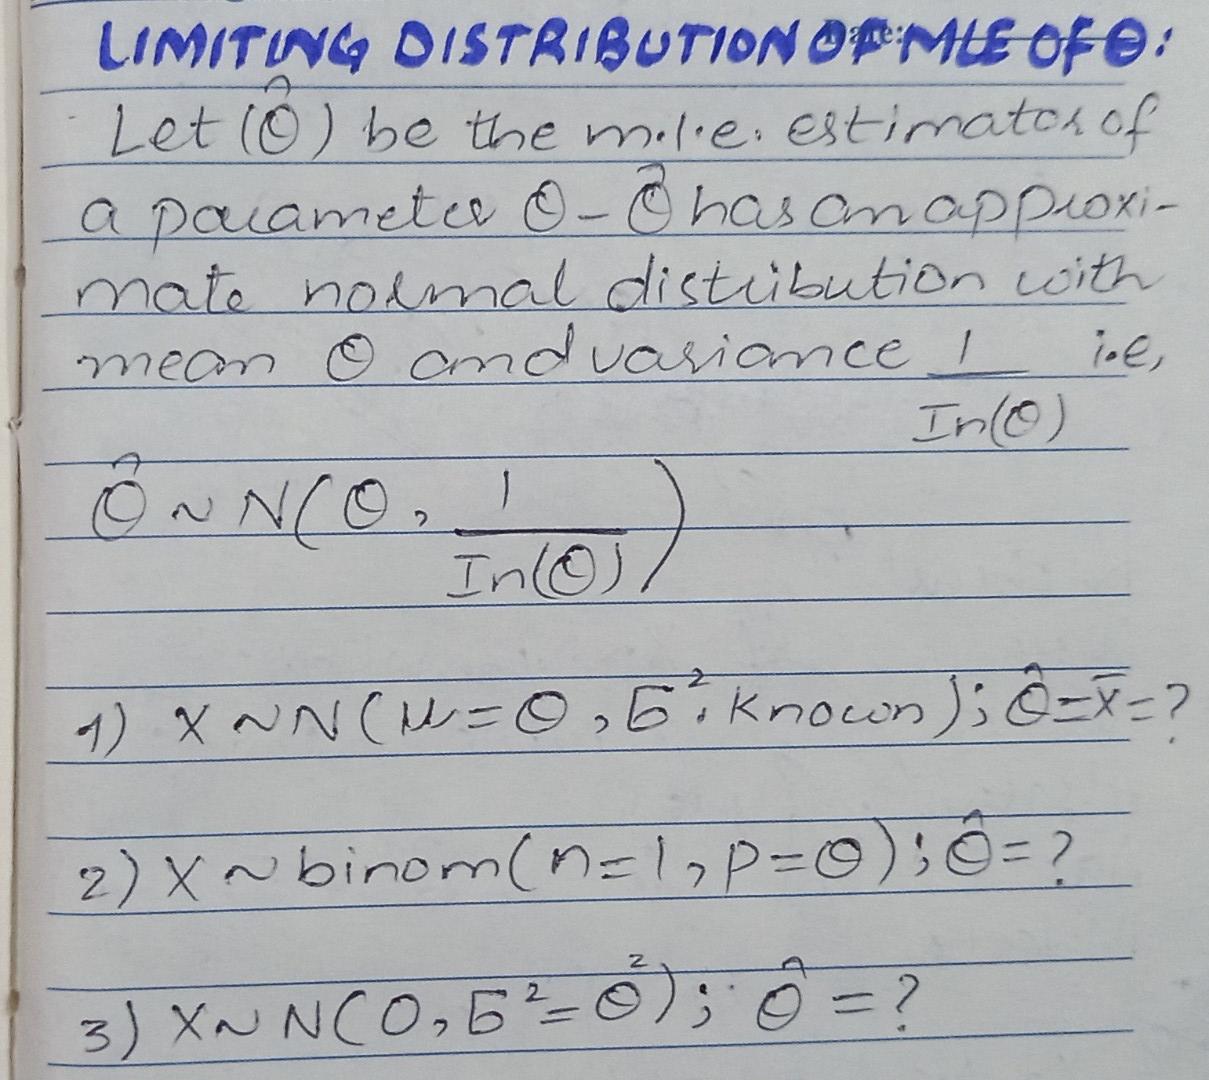 LIMITING DISTRIBUTION OF MLE OF θ:
Let (θ̂) be the m.l.e. estimator of
a parameter θ - θ̂ has an approxi-
mate normal distribution with
mean θ and variance 1/In(θ) i.e,
θ̂ ~ N(θ, 1/In(θ))
1) X ~ N(μ = θ, σ²: known); θ̂ = x̄ = ?
2) X ~ binom(n = 1, p = θ); θ̂ = ?
3) X ~ N(0, σ² = θ²); θ̂ = ?